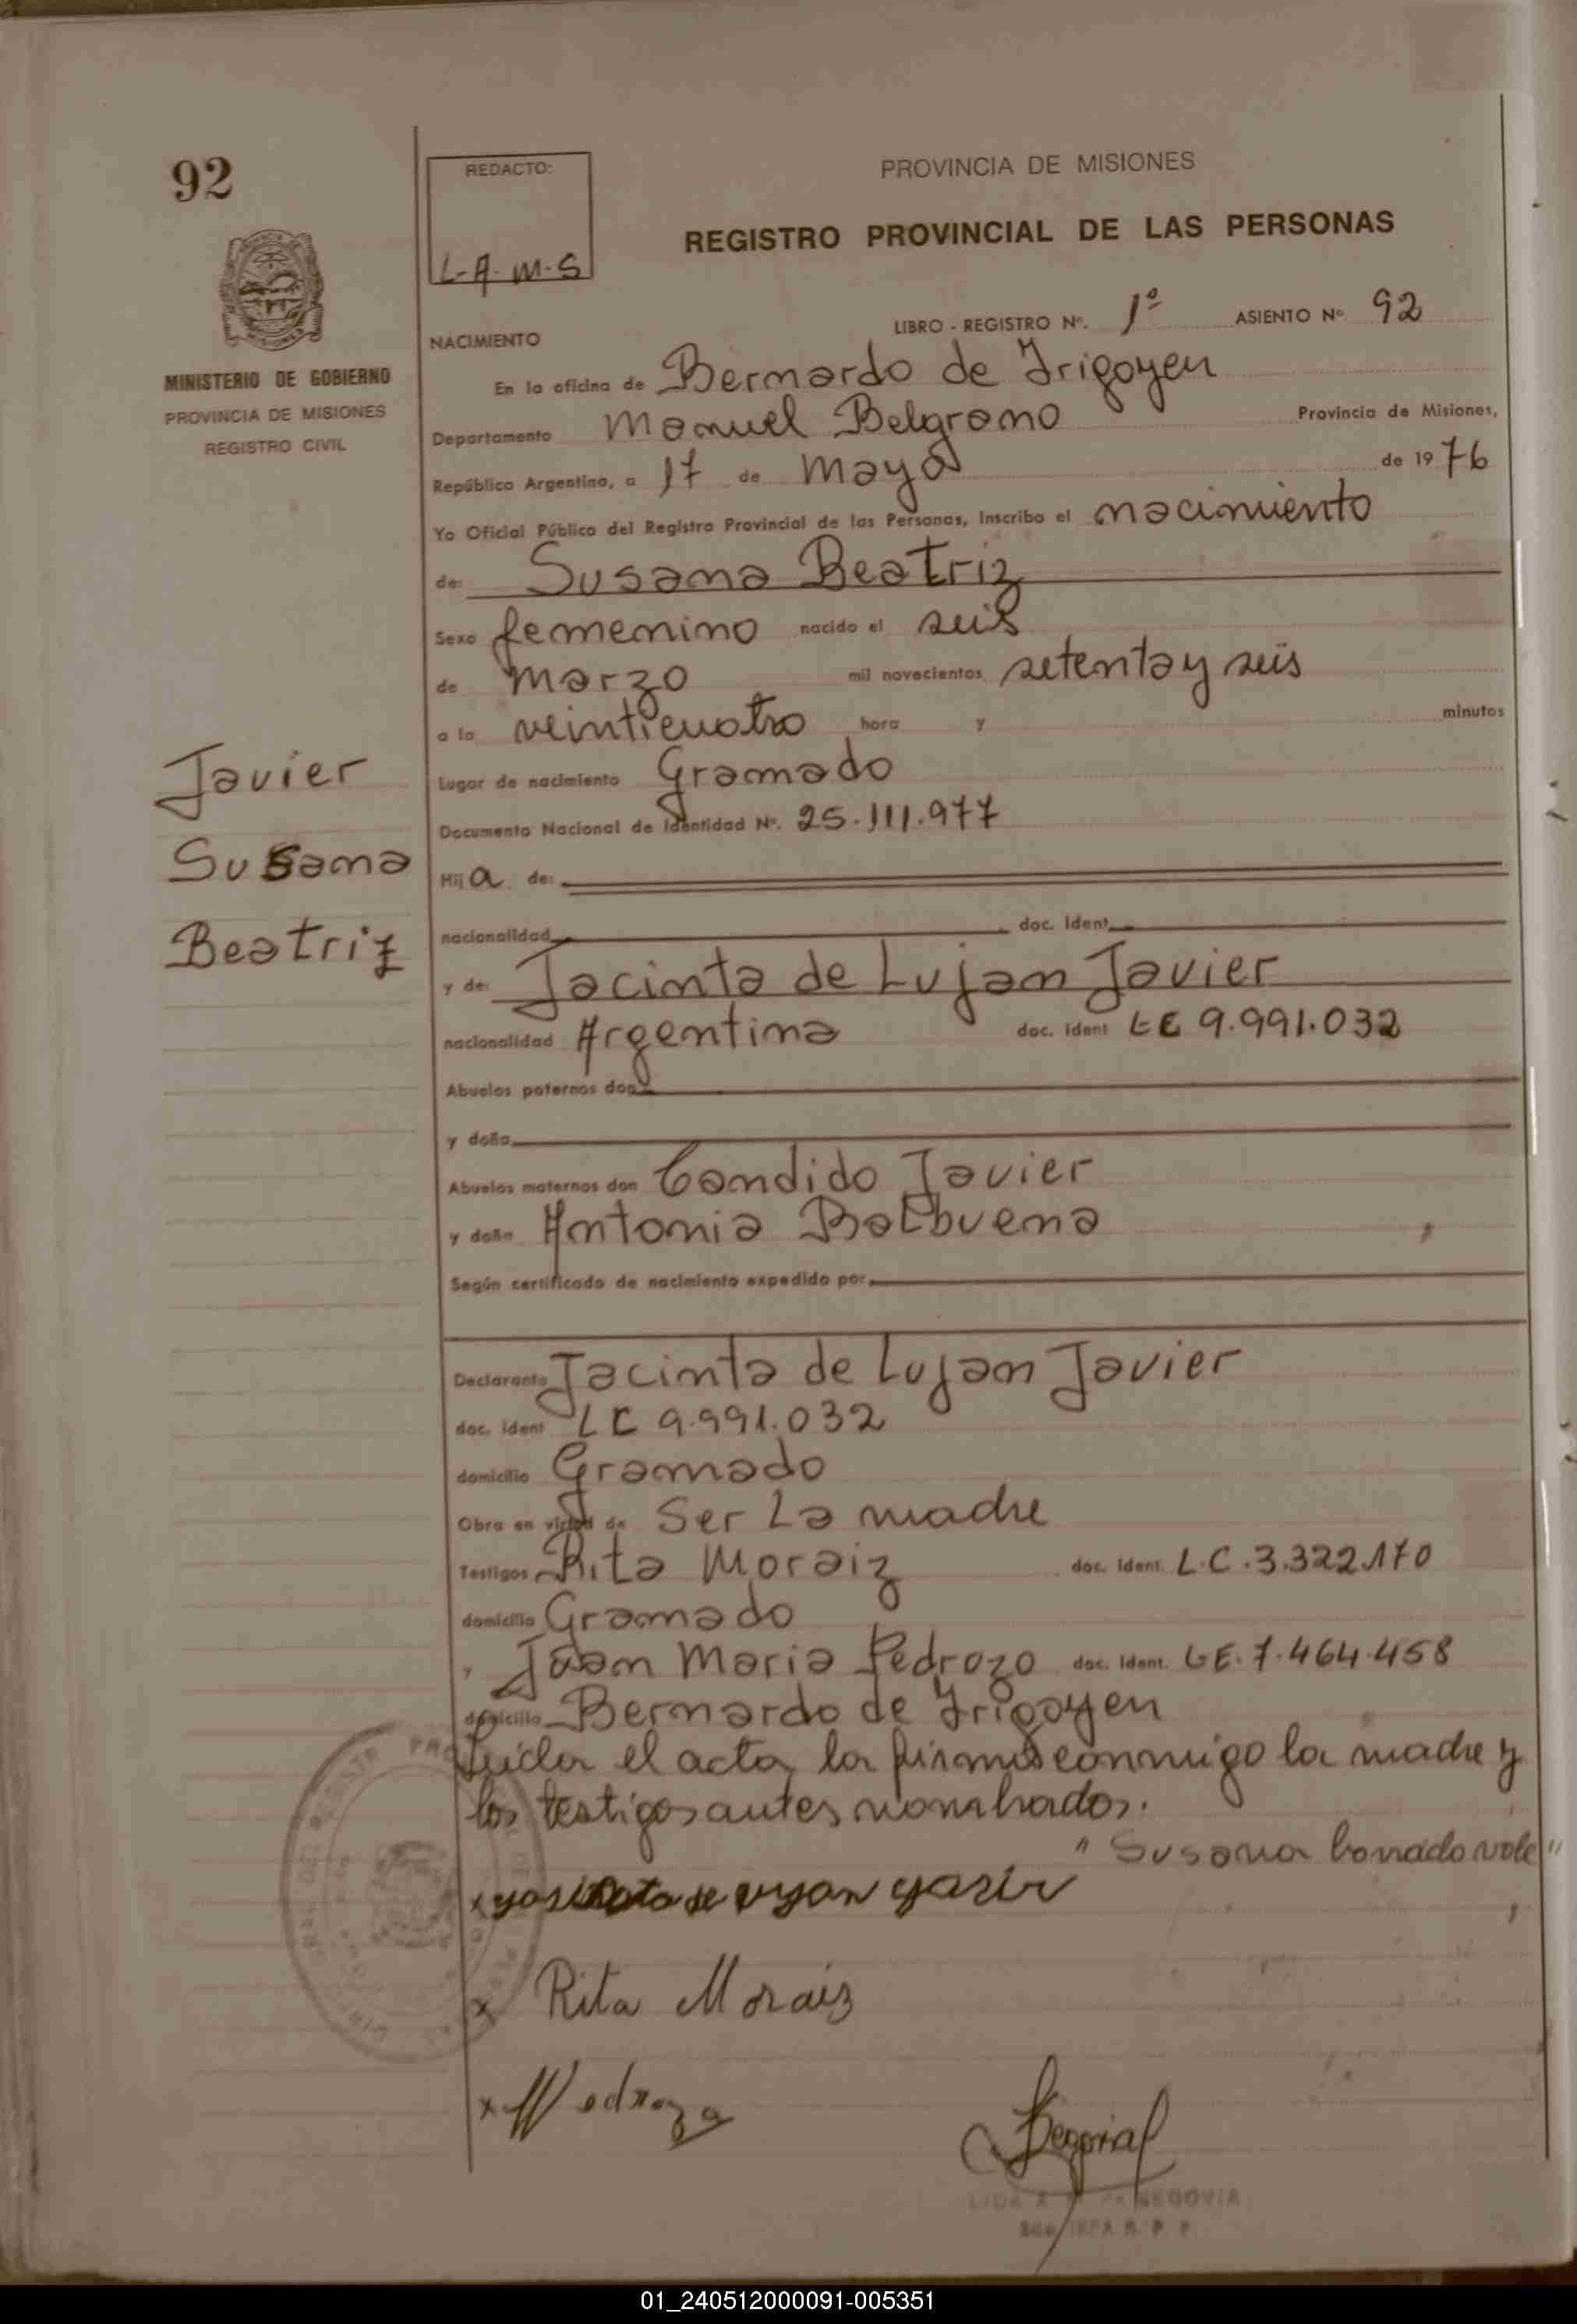 92
REDACTO:
L-A-M-S
PROVINCIA DE MISIONES
REGISTRO PROVINCIAL DE LAS PERSONAS
MINISTERIO DE GOBIERNO
PROVINCIA DE MISIONES
REGISTRO CIVIL
LIBRO - REGISTRO Nº. 1º ASIENTO Nº 92
NACIMIENTO
En la oficina de Bernardo de Irigoyen
Departamento Manuel Belgrano Provincia de Misiones,
República Argentina, a 17 de Mayo de 1976
Yo Oficial Público del Registro Provincial de las Personas, Inscribo el nacimiento
de: Susana Beatriz
Sexo femenino nacido el seis
de marzo mil novecientos setenta y seis
a la veinticuatro hora y minutos
Javier
Susana
Beatriz
Lugar de nacimiento Gramado
Documento Nacional de Identidad Nº. 25.111.977
Hija de:
nacionalidad doc. Ident.
y de: Jacinta de Lujan Javier
nacionalidad Argentina doc. Ident LC 9.991.032
Abuelos paternos don
y doña
Abuelos maternos don Candido Javier
y doña Antonia Balbuena
Según certificado de nacimiento expedido por
Declarante Jacinta de Lujan Javier
doc. ident LC 9.991.032
domicilio Gramado
Obra en virtud de Ser La madre
Testigos Rita Moraiz doc. Ident. L.C.3.322.170
domicilio Gramado
y Juan Maria Pedrozo doc. Ident. LE.7.464.458
domicilio Bernardo de Irigoyen
Leida el acta, la firman conmigo la madre y
los testigos antes nombrados.
"Susana borrado vale"
x
x Rita Moraiz
x
SEGOVIA
01_240512000091-005351